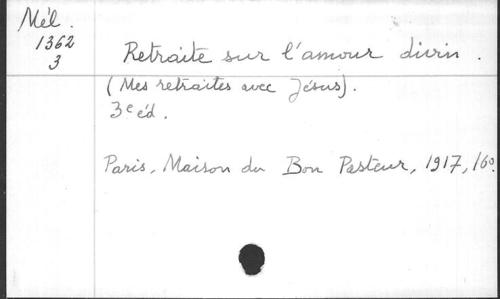 Mél.
1362
3
Retraite sur l'amour divin.
(Mes retraites avec Jésus).
3e éd.
Paris, Maison du Bon Pasteur, 1917, 16o.